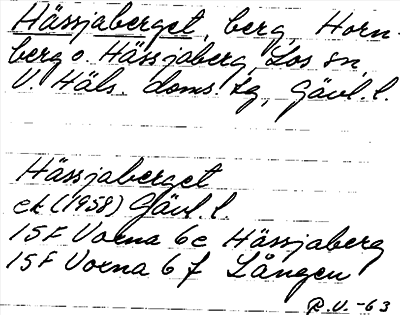 Hässjaberget, berg, Horn-
berg o. Hässjaberg, Los sn,
V. Häls. doms. tg, Gävl. l.
Hässjaberget
ek (1958) Gävl. l.
15F Voxna 6e Hässjaberg
15F Voxna 6f Lången
R.U. -63